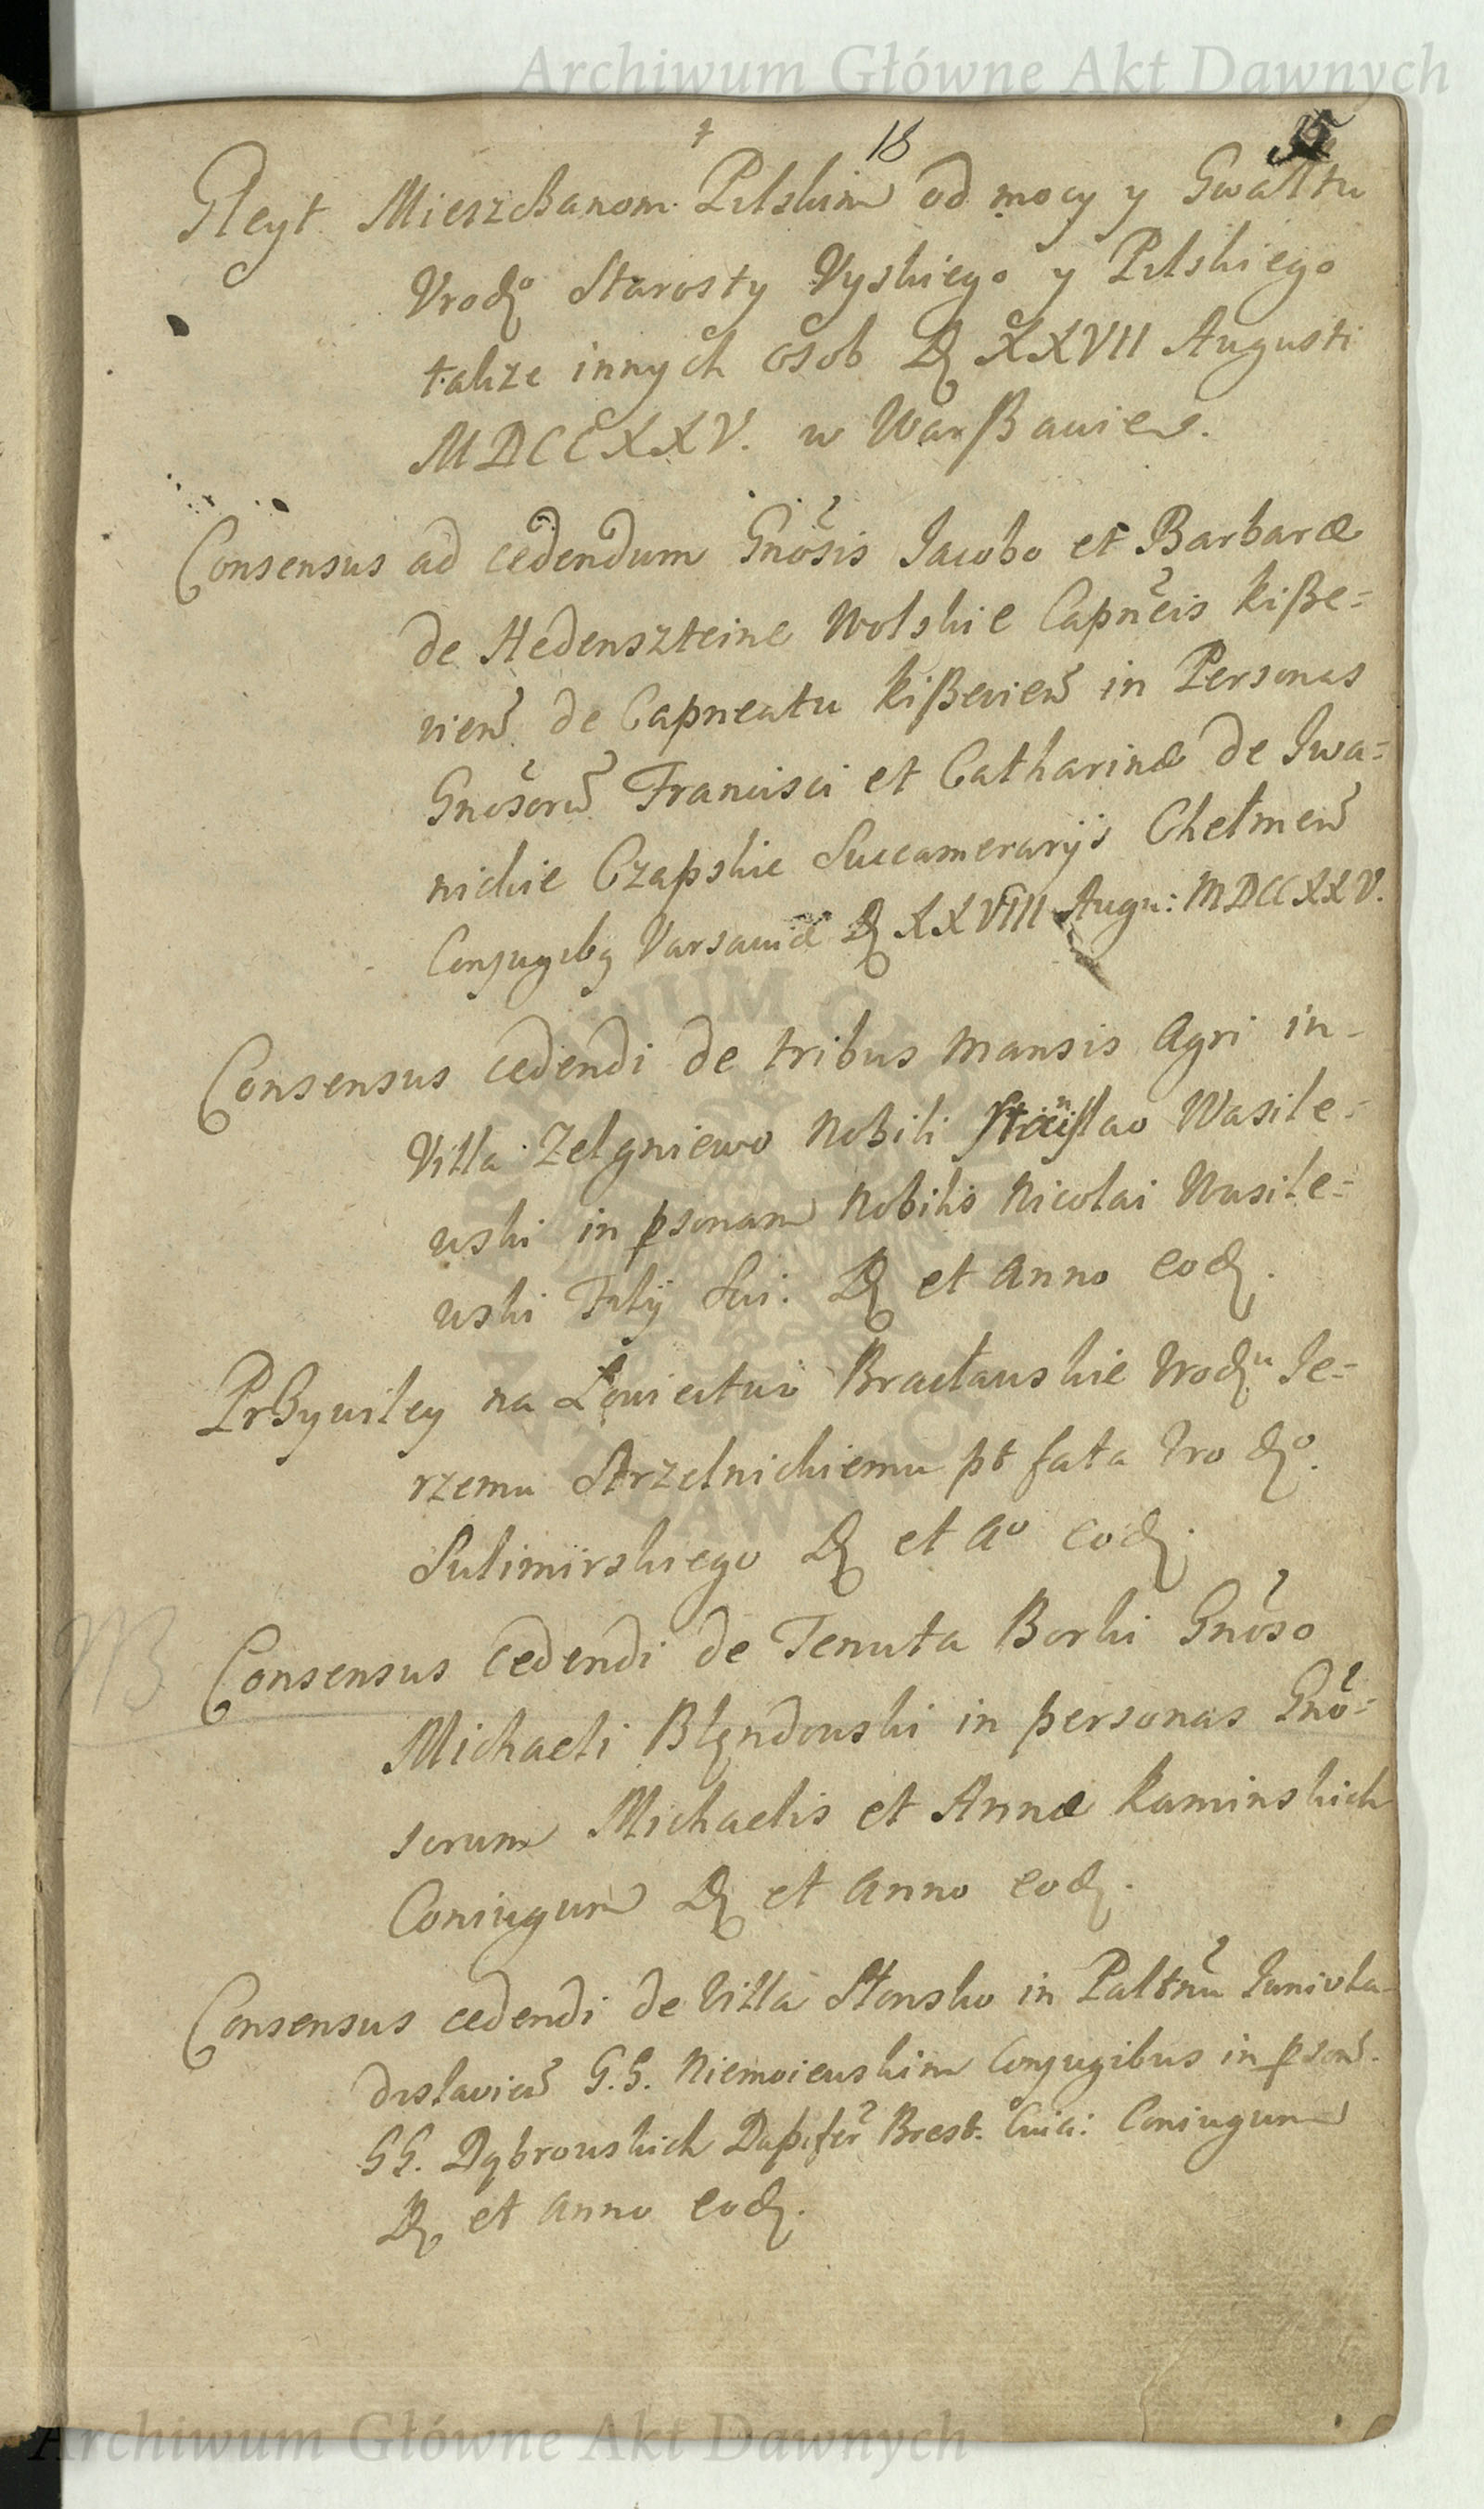 Archiwum Główne Akt Dawnych
18 35
Gleyt Mieszczanom Pilskim od mocy y Gwałtu
Vrodzo Starosty Vyskiego y Pilskiego
takze innych osob D. XXVII Augusti
MDCCXXV. w Warßawie.
Consensus ad cedendum Gnosis Iacobo et Barbaræ
de Hedenszteine Wolskie Capneis Kiße=
vien de Capneatu Kißevien in Personas
Gnosoru Francisci et Catharinæ de Iwa=
nickie Czapskie Succamerarijs Chełmen
Conjugibq Varsaviæ D. XXVIII Augu: MDCCXXV.
Consensus cedendi de tribus mansis Agri in
Villa Zelgniewo Nobili Stanislao Wasile=
wski in psonam Nobilis Nicolai Wasile=
wski Filij Sui. D. et Anno eod.
Prßywiley na Łowiectwo Bracławskie Vrodzu Ie=
rzemu Strzelnickiemu pt fata Vrodzo
Sulimirskiego D. et Ao eod.
Consensus cedendi de Tenuta Borki Gnoso
Michaeli Blędowski in personas Gno=
sorum Michaelis et Annæ Kaminskich
Coniugum D. et Anno eod.
Consensus cedendi de Villa Słonsko in Paltnu Iunivla
dislavien G.G. Niemoiewskim Conjugibus in pson.
GG. Dąbrowskich Dapifer Brest. Cuia: Coniugum
D. et Anno eod.
NB
ARCHIWUM GŁÓWNE AKT DAWNYCH
Archiwum Główne Akt Dawnych